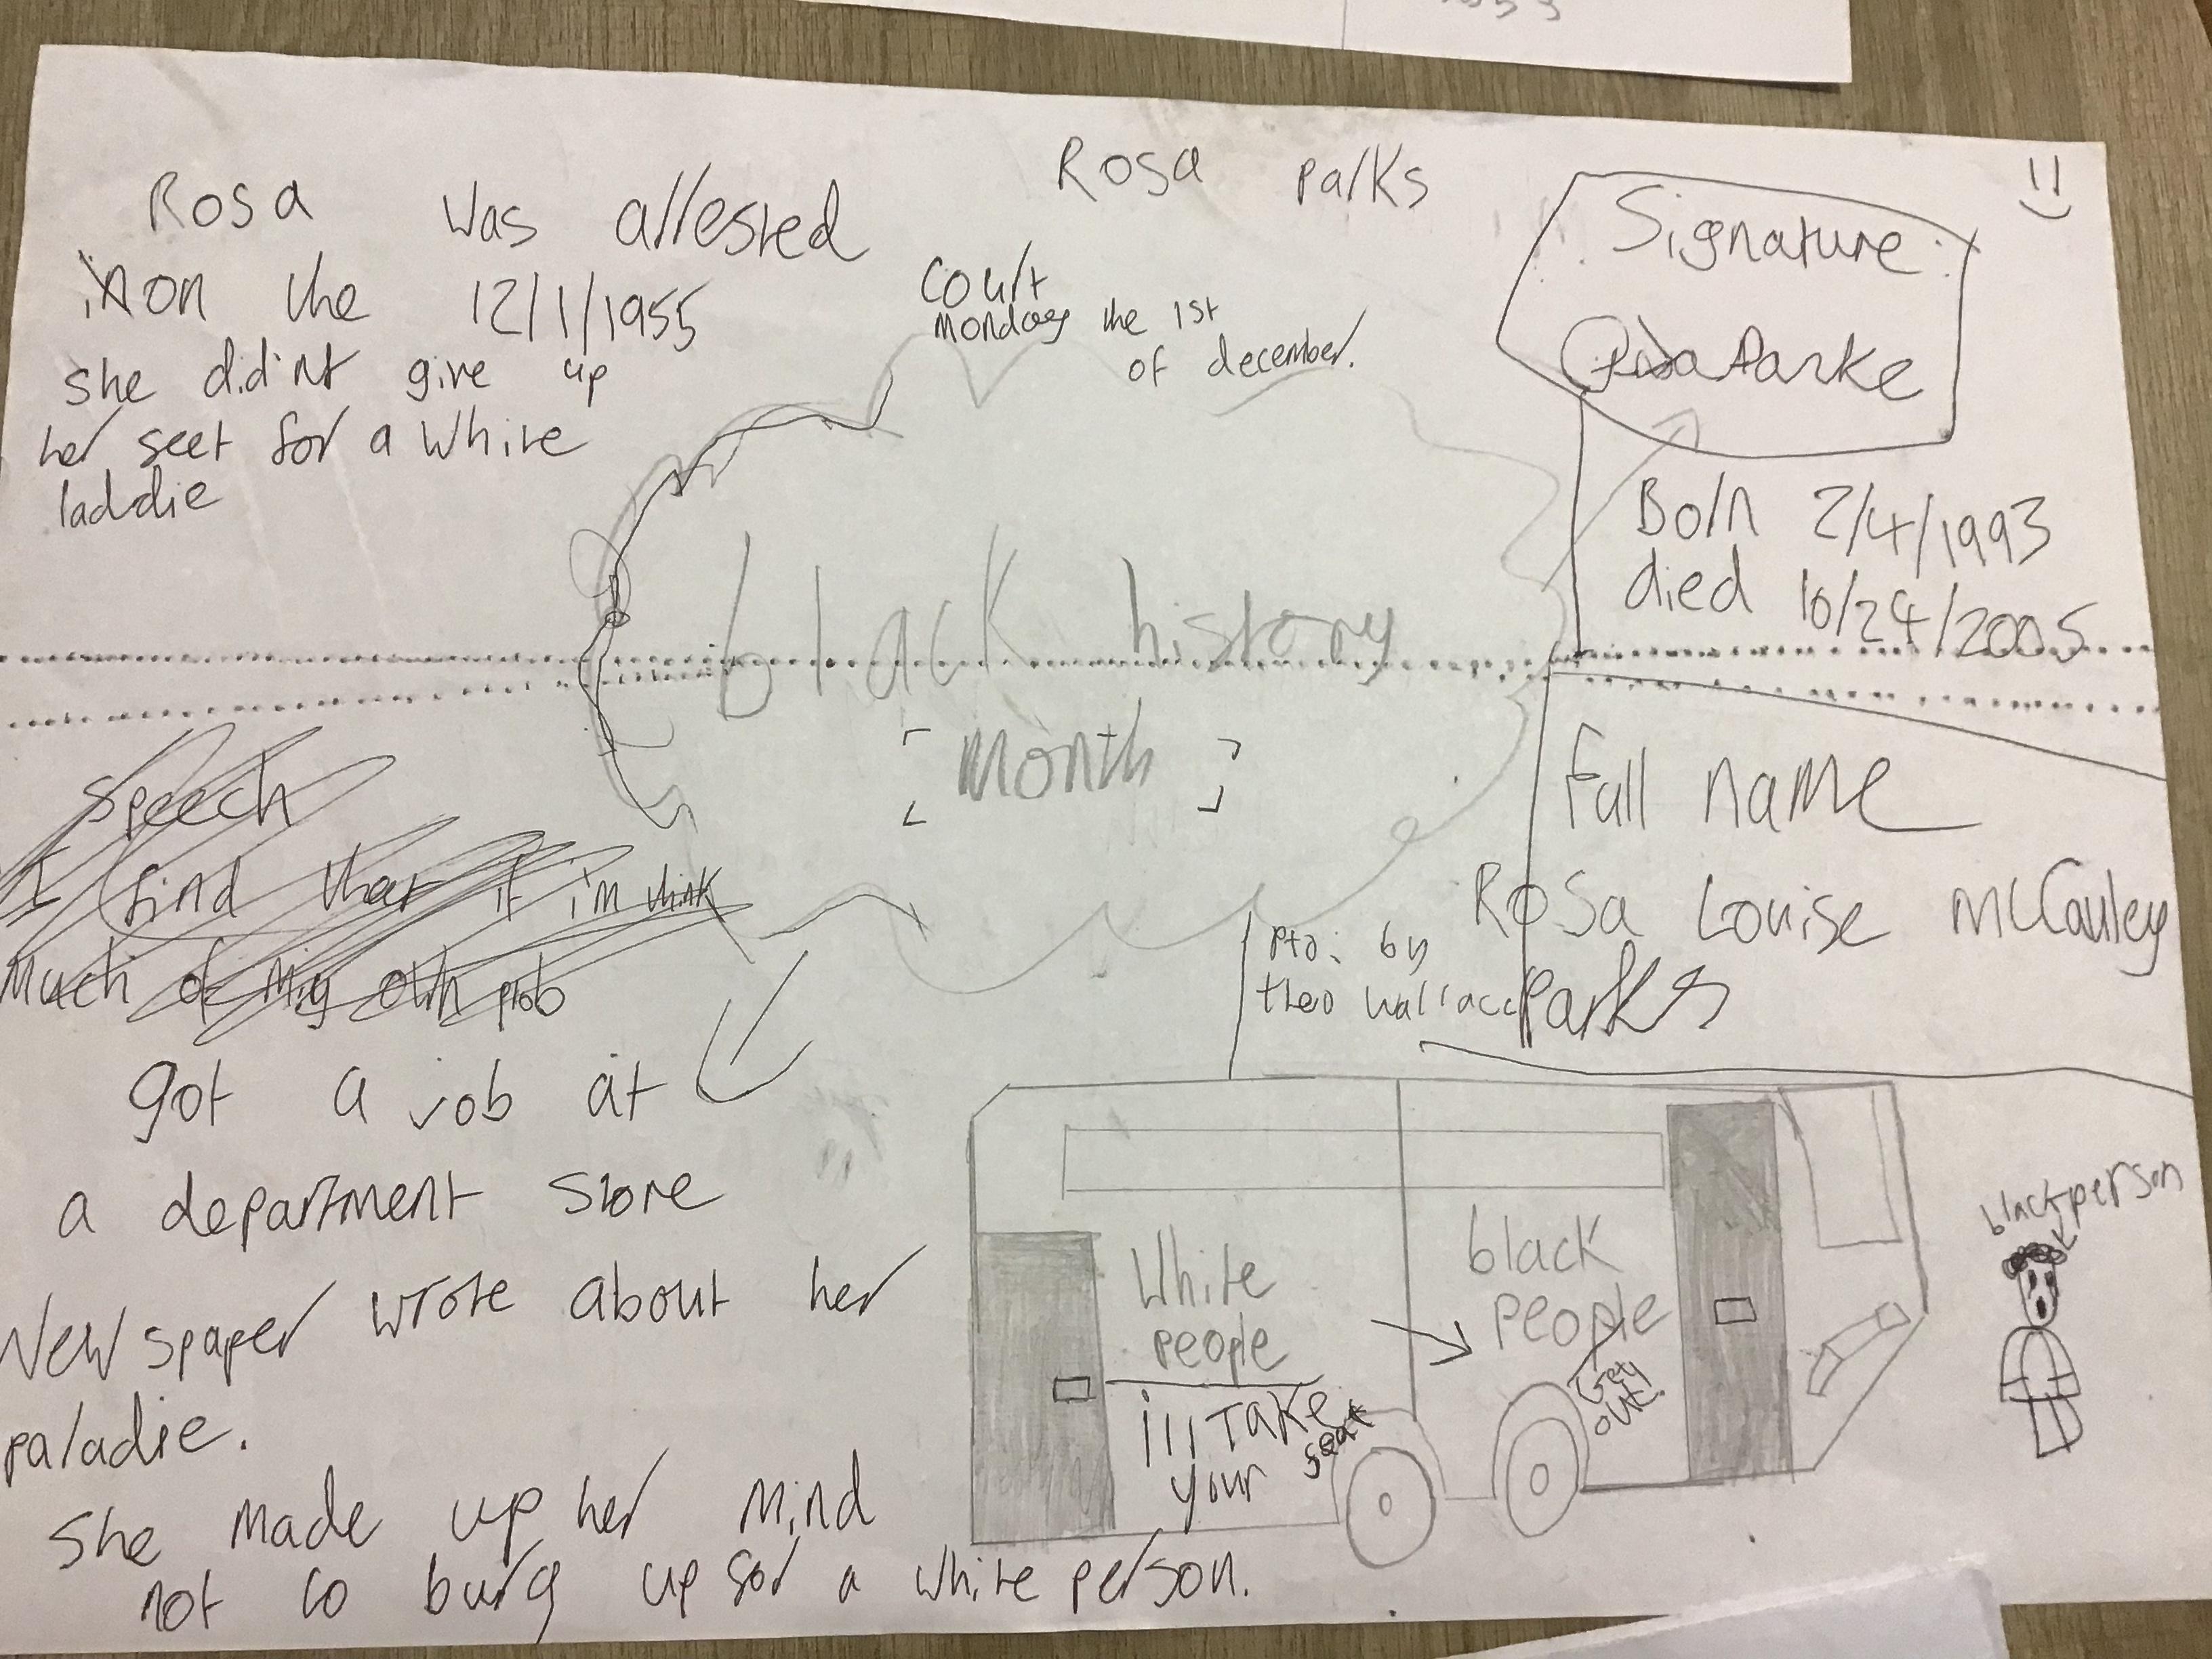 Rosa parks
Rosa was arrested
on the 12/1/1955
she did'nt give up
her seet for a white
laddie
court
monday the 1st
of december.
Signature
Born 2/4/1993
died 10/24/2005
black history
month
Full name
Rosa Louise McCauley
Parks
speech
I find that if i'm think
much of my own prob
pto: by
theo wallace
got a job at
a department store
Newspaper wrote about her
paladie.
She made up her mind
not to
up for a white person.
White
people
ill Take
your seat
black
people
Get
out.
black person